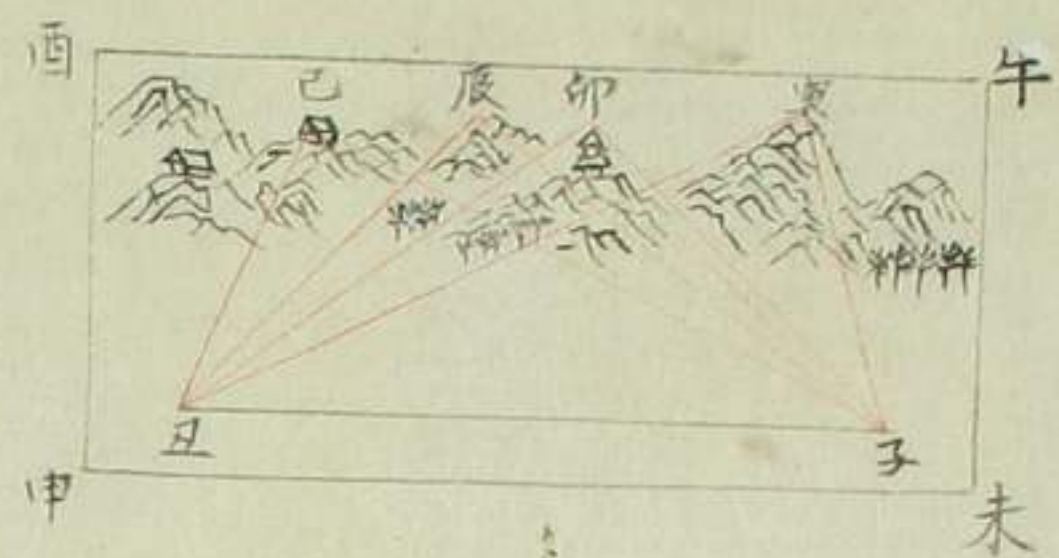 酉
巳
辰
卯
寅
午
丑
子
申
未